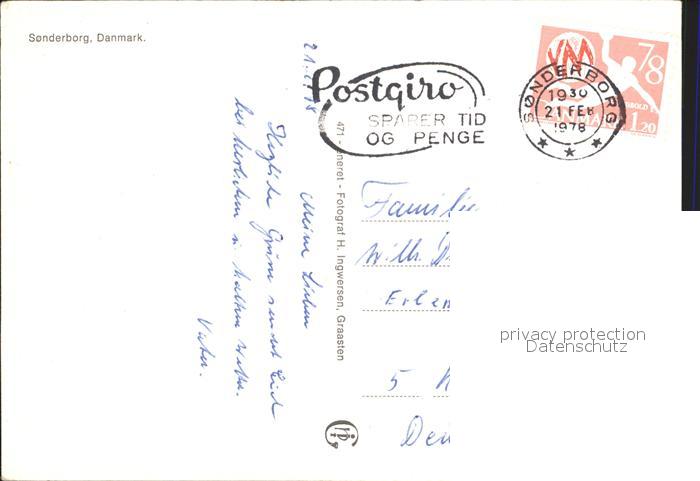 Sønderborg, Danmark.
Postgiro
SPARER TID
OG PENGE
SØNDERBORG
19 30
21 FEB
1978
VM
78
DANMARK 1.20
471 - eneret - Fotograf H. Ingwersen, Graasten
Meine Lieben
Herzliche Grüße sendet Euch
bei
Vater.
Familie
Wilh.
5
privacy protection
Datenschutz